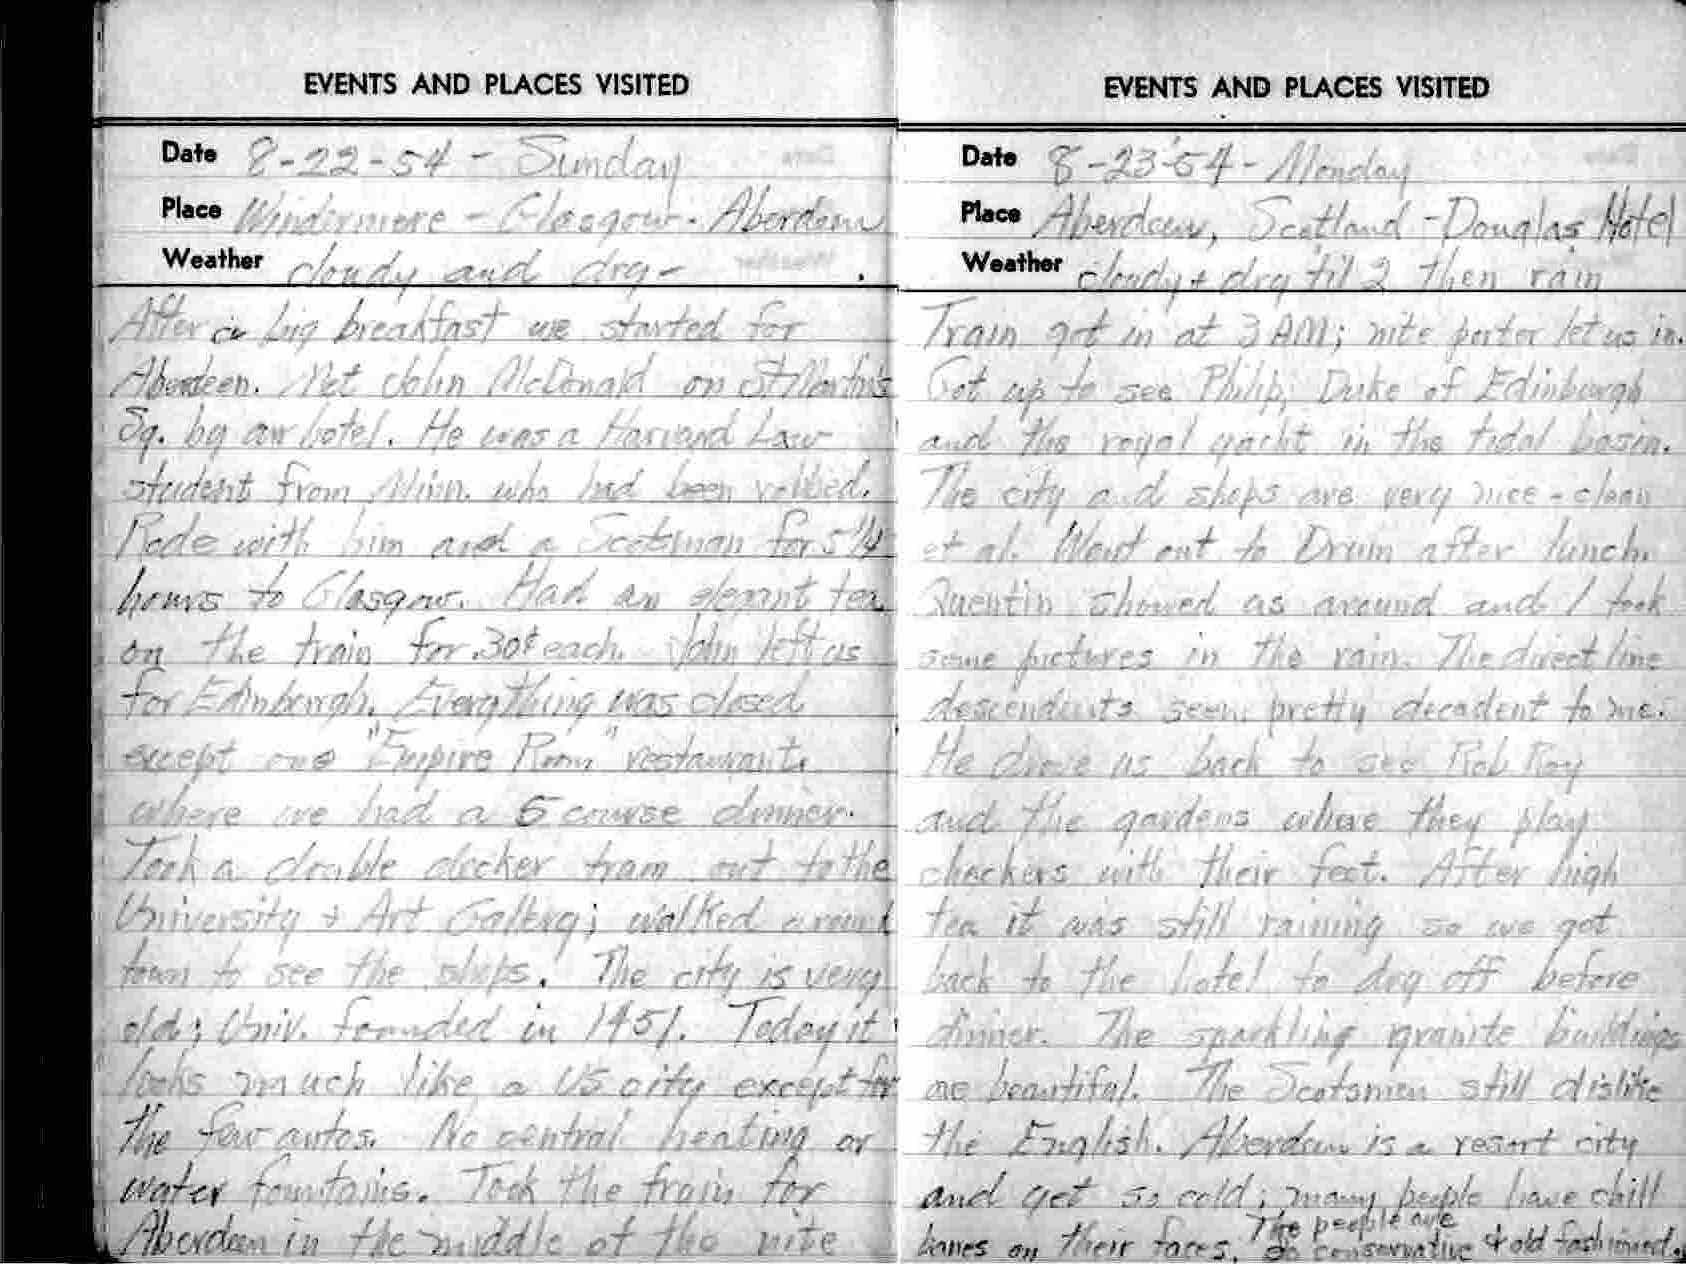 EVENTS AND PLACES VISITED
Date 8-22-54 - Sunday
Place Windermere - Glasgow - Aberdeen
Weather cloudy and dry -
After a big breakfast we started for
Aberdeen. Met John McDonald on St. Martin's
Sq. by our hotel. He was a Harvard Law
student from Minn. who had been robbed.
Rode with him and a Scotsman for 5 1/4
hours to Glasgow. Had an elegant tea
on the train for .30¢ each. John left us
for Edinburgh. Everything was closed
except one "Empire Room" restaurant,
where we had a 5 course dinner.
Took a double decker tram out to the
University & Art Gallery; walked around
town to see the shops. The city is very
old; Univ. founded in 1451. Today it
looks much like a US city except for
the few autos. No central heating or
water fountains. Took the train for
Aberdeen in the middle of the nite
EVENTS AND PLACES VISITED
Date 8-23-54 - Monday
Place Aberdeen, Scotland - Douglas Hotel
Weather cloudy + dry til 2 then rain
Train got in at 3 AM; nite porter let us in.
Got up to see Philip, Duke of Edinburgh
and the royal yacht in the tidal basin.
The city and shops are very nice - clean
et al. Went out to Drum after lunch.
Quentin showed us around and I took
some pictures in the rain. The direct line
descendents seem pretty decadent to me.
He drove us back to see Rob Roy
and the gardens where they play
checkers with their feet. After high
tea it was still raining so we got
back to the hotel to dry off before
dinner. The sparkling granite buildings
are beautiful. The Scotsmen still dislike
the English. Aberdeen is a resort city
and yet so cold; many people have chill
banes on their faces. The people are
so conservative & old fashioned.